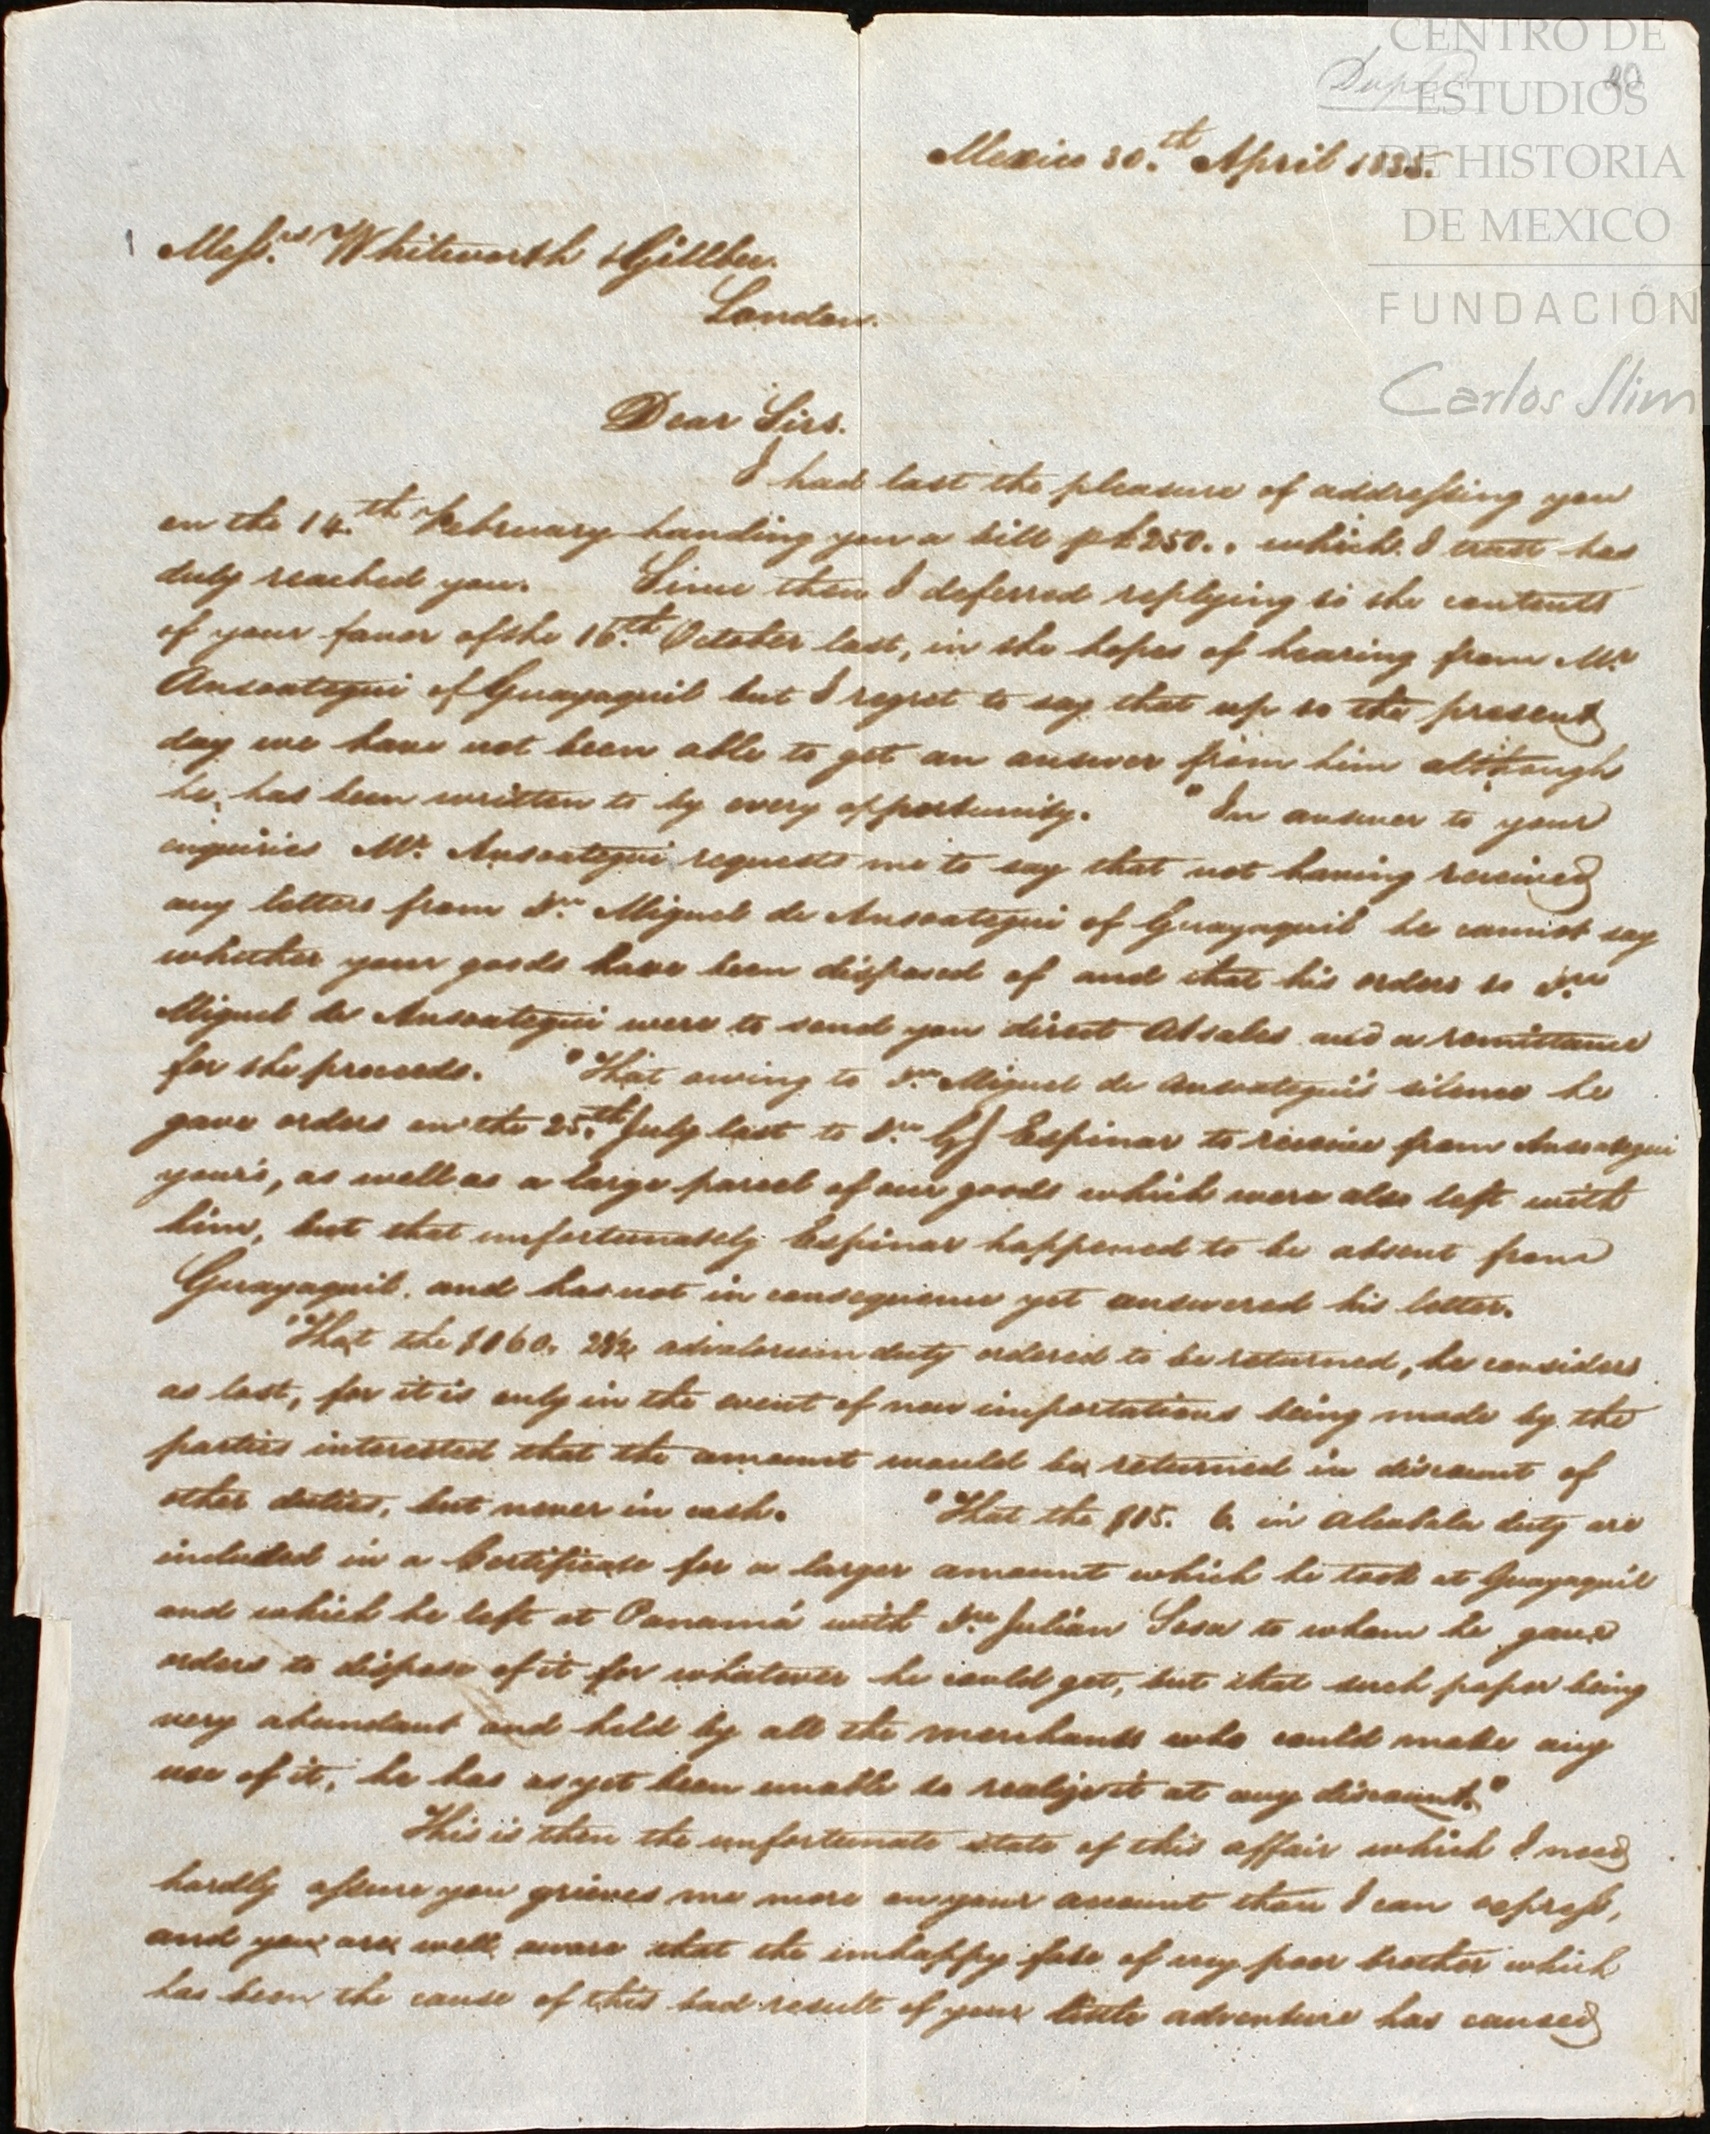 CENTRO DE
ESTUDIOS
DE HISTORIA
DE MEXICO
FUNDACIÓN
Carlos Slim
Mexico 30.th April 1835.
Mess.rs Whitworth & Gillbee.
London.
Dear Sirs.
I had last the pleasure of addressing you
on the 14.th February handing you a bill p £250.. which I trust has
duly reached you. Since then I deferred replying to the contents
of your favor of the 16.th October last, in the hopes of hearing from Mr.
Ansoategui of Guayaquil but I regret to say that up to the present
day we have not been able to get an answer from him although
he has been written to by every opportunity. "In answer to your
enquiries Mr. Ansoategui requests me to say that not having received
any letters from Dn. Miguel de Ansoategui of Guayaquil he cannot say
whether your goods have been disposed of and that his orders to Dn.
Miguel de Ansoategui were to send you direct A/sales and a remittance
for the proceeds. "That owing to Dn. Miguel de Ansoategui's silence he
gave orders on the 25.th July last to Dn. Espinar to receive from Ansoategui
your's, as well as a large parcel of our goods which were also left with
him, but that unfortunately Espinar happened to be absent from
Guayaquil and has not in consequence yet answered his letter.
"That the $860. 2½ advalorem duty ordered to be returned, he considers
as lost, for it is only in the event of new importations being made by the
parties interested that the amount would be returned in discount of
other duties, but never in cash. "That the $85. 6. in Alcabala duty are
included in a Certificate for a larger amount which he took at Guayaquil
and which he left at Panamá with Dn. Julian Sosa to whom he gave
orders to dispose of it for whatever he could get, but that such paper being
very abundant and held by all the merchants who could make any
use of it, he has as yet been unable to realize it at any discount."
This is then the unfortunate state of this affair which I need
hardly assure you grieves me more on your account than I can express,
and you are well aware that the unhappy fate of my poor brother which
has been the cause of this bad result of your little adventure has caused